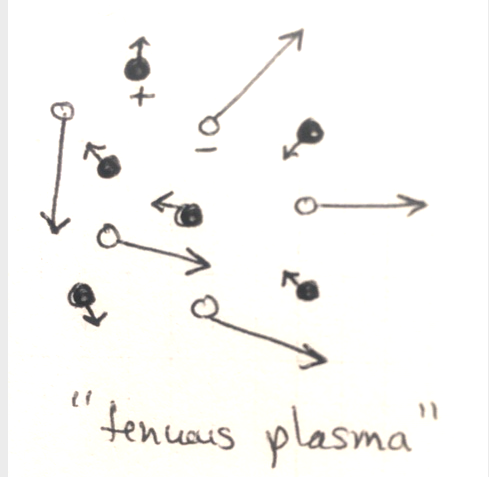 +
−
"tenuous plasma"